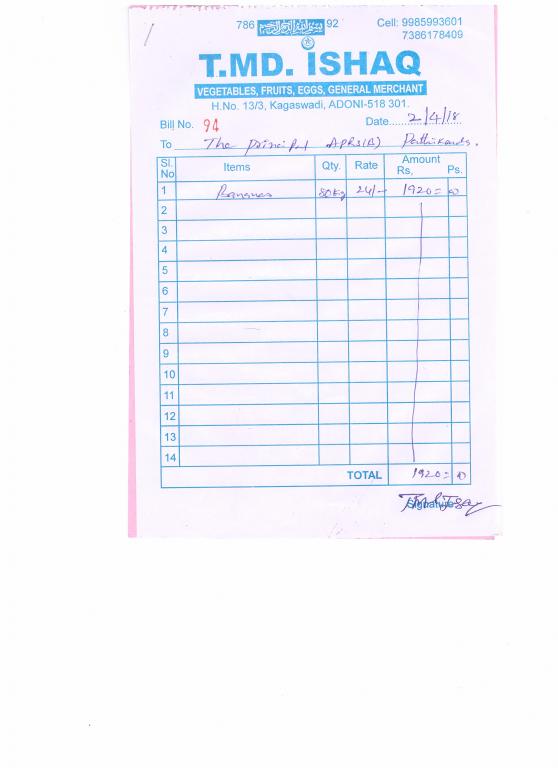 786 بسم الله الرحمن الرحيم 92
Cell: 9985993601
7386178409
T.MD. ISHAQ
VEGETABLES, FRUITS, EGGS, GENERAL MERCHANT
H.No. 13/3, Kagaswadi, ADONI-518 301.
Bill No. 94 Date 2/4/18
To The Principal APRS(B)
Sl. No Items Qty. Rate Amount Rs, Ps.
1 Bananas 80 Kg 24/- 1920 = 00
2
3
4
5
6
7
8
9
10
11
12
13
14
TOTAL 1920 = 00
Signature